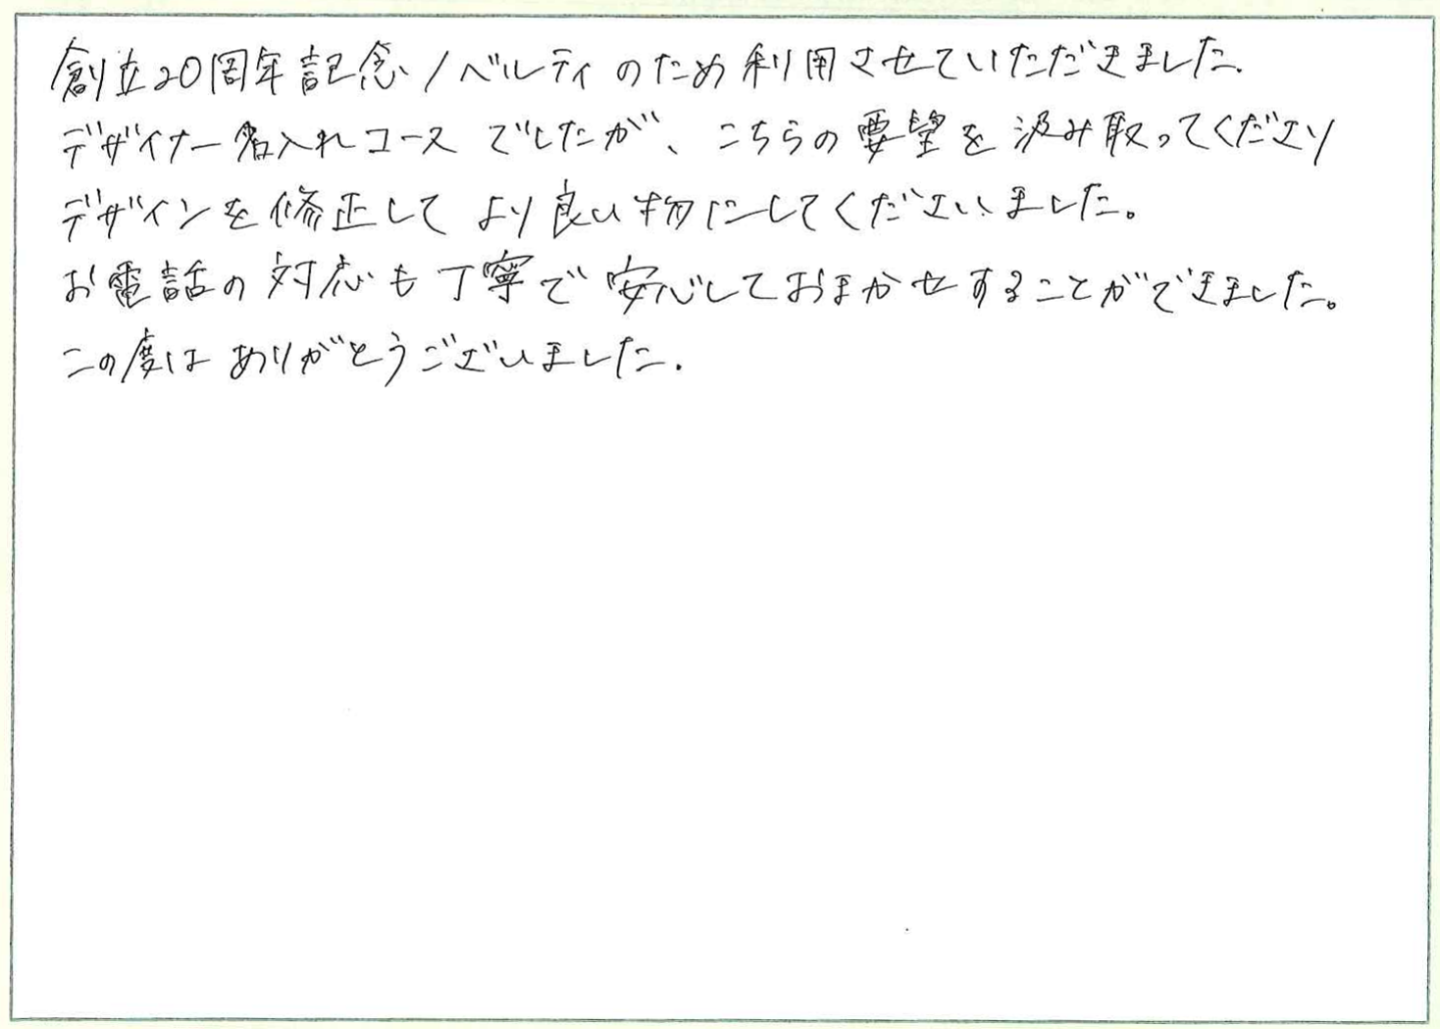 創立20周年記念ノベルティのため利用させていただきました.
デザイナー名入れコースでしたが、こちらの要望を汲み取ってくださり
デザインを修正してより良い物にしてくださいました。
お電話の対応も丁寧で安心しておまかせすることができました。
この度はありがとうございました.